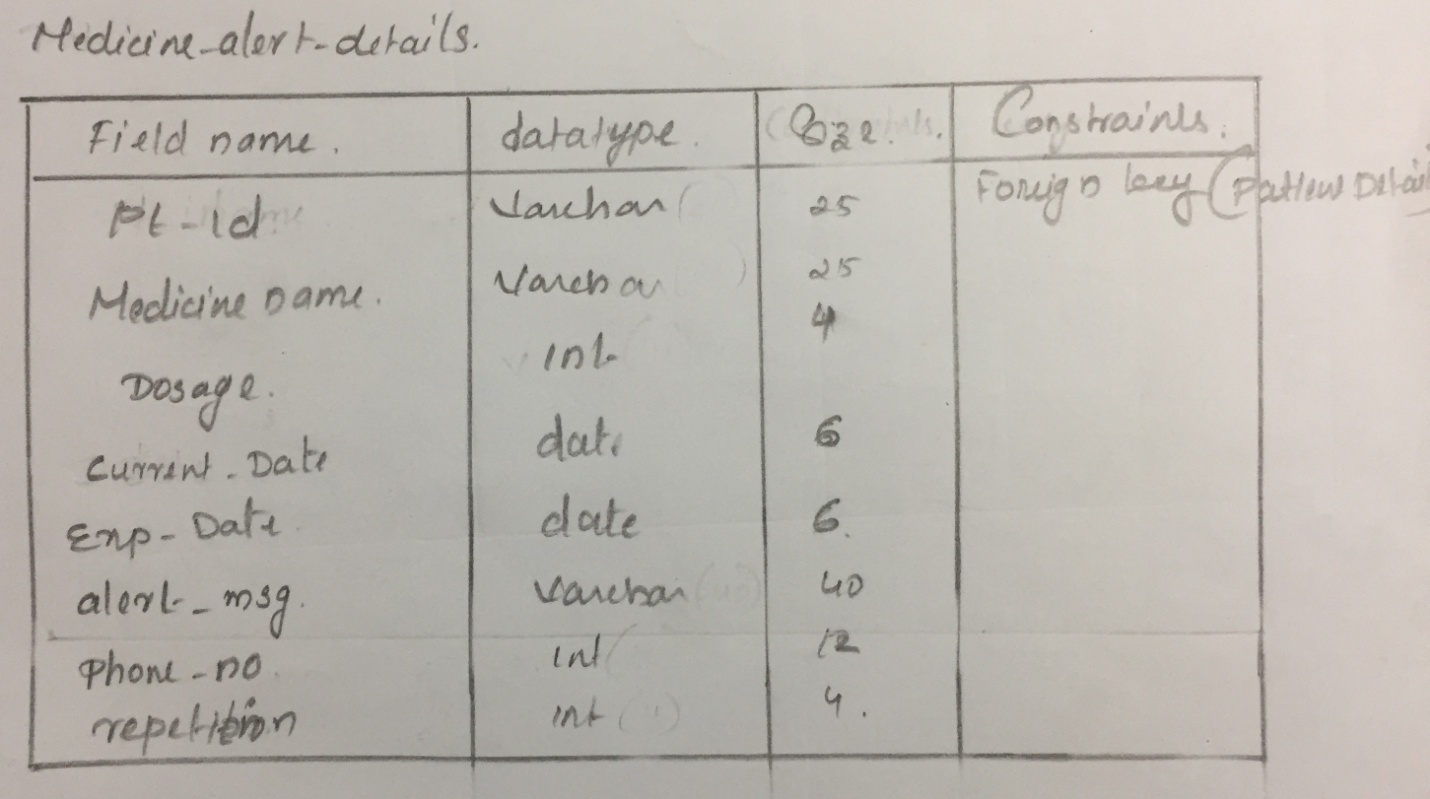 Medicine-alert-details.
Field name. datatype. Size. Constraints.
Pt-id Varchar 25 Foreign key (Patient Detai
Medicine name. Varchar 25
Dosage. int 4
Current-Date date 6
Exp-Date date 6.
alert-msg. Varchar 40
Phone-no. int 12
repetition int 4.